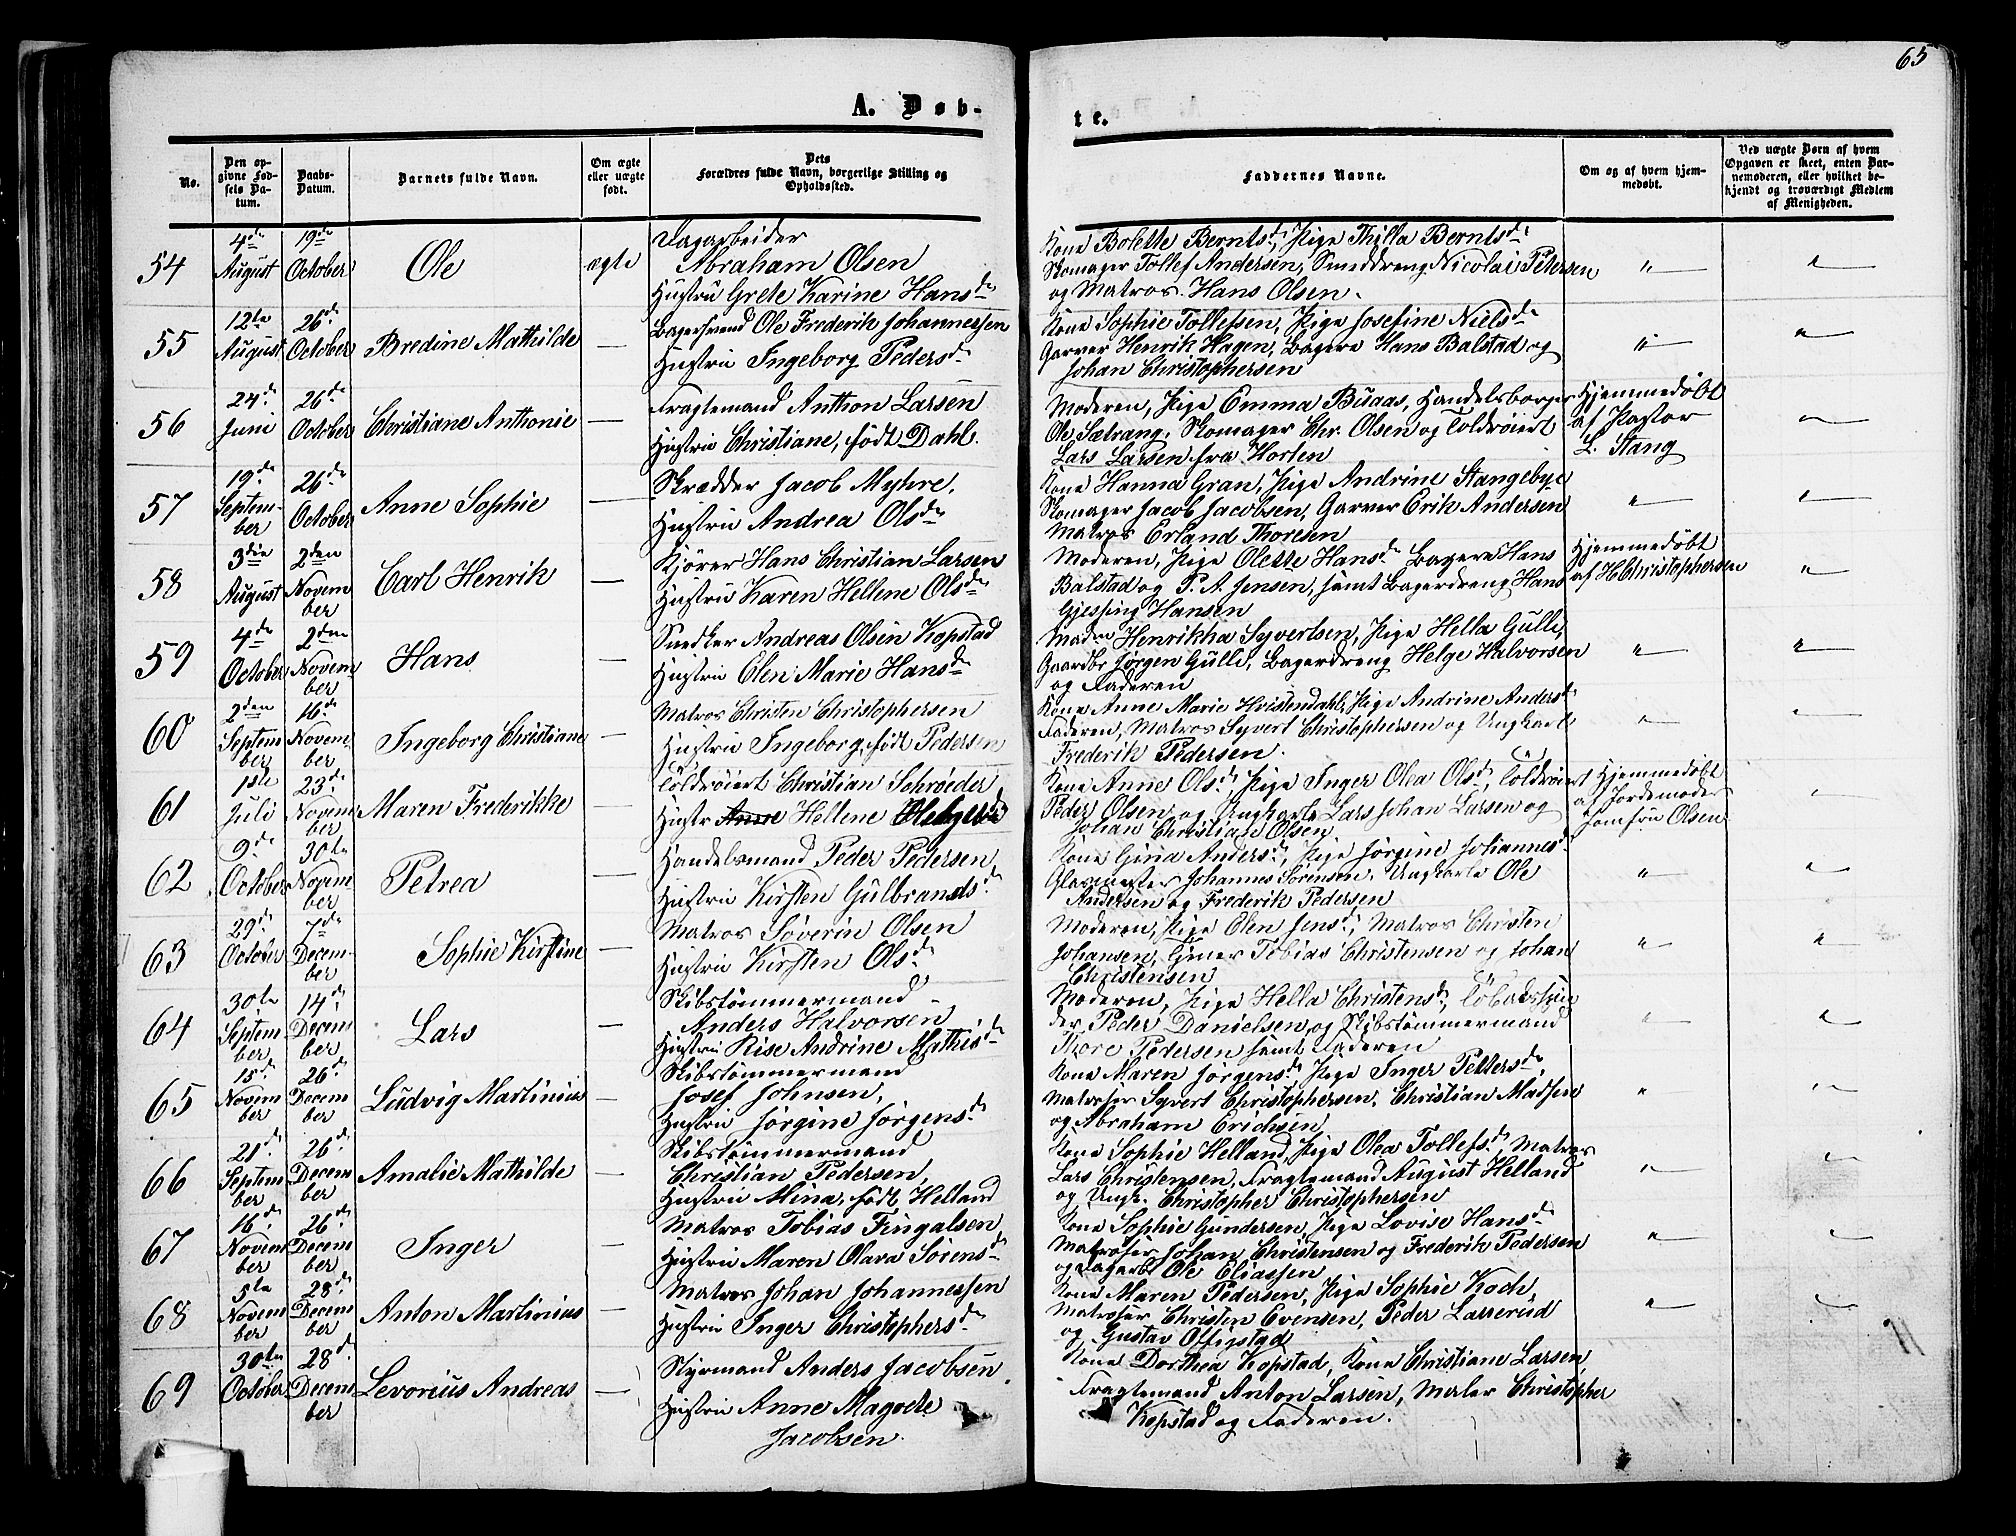 65
A. Døb-
te.
No.
Den op-
givne Fød-
sels Da-
tum.
Daabs-
Datum.
Barnets fulde Navn.
Om ægte
eller uægte
født.
Dets
Forældres fulde Navn, borgerlige Stilling og
Opholdssted.
Faddernes Navne.
Om og af hvem hjem-
medøbt.
Ved uægte Børn af hvem
Opgaven er skeet, enten Bar-
nemoderen, eller hvilket be-
kjendt og troværdigt Medlem
af Menigheden.
54
4de
August
19de
October
Ole
ægte
Dagarbeider
Abraham Olsen
Hustru Grete Karine Hansdr
Kone Bolette Berntsdr, Pige Thilla Berntsdr
Skomager Tollef Andersen, Smeddreng Nicolai Petersen
og Matros Hans Olsen.
55
12te
August
26de
October
Bredine Mathilde
Bagersvend Ole Frederik Johannessen
Hustru Ingeborg Pedersdr
Kone Sophie Tollefsen, Pige Josefine Nielsdr
Garver Henrik Hagen, Bagere Hans Balstad og
Johan Christophersen
56
24de
Juni
26de
October
Christiane Anthonie
Fragtemand Anthon Larsen
Hustru Christiane, født Dahl.
Moderen, Pige Emma Buaas, Handelsborger
Ole Sætrang, Skomager Chr. Olsen og Toldroiert
Lars Larsen fra Horten
Hjemmedøbt
af Pastor
L. Stang
57
19de
Septem-
ber
26de
October
Anne Sophie
Skrædder Jacob Myhre,
Hustru Andrea Olsdr
Kone Hanna Gran, Pige Andrine Stangebye
Skomager Jacob Jacobsen, Garver Erik Andersen
Matros Erland Thoresen
58
3die
August
2den
Novem
ber
Carl Henrik
Kjører Hans Christian Larsen
Hustru Karen Hellene Olsdr
Moderen, Pige Olette Hansdr Bagere Hans
Balstad og P. A. Jensen, samt Bagerdreng Hans
Gjessing Hansen
Hjemmedøbt
af H Christophersen
59
4de
October
2den
Novem
ber
Hans
Snedker Andreas Olsen Kopstad
Hustru Elen Marie Hansdr
Madm Henrikha Syvertsen, Pige Hella Gulli,
Gaardbr Jørgen Gulli, Bagerdreng Helge Halvorsen
og Faderen
60
2den
Septem
ber
16de
Novem-
ber
Ingeborg Christiane
Matros Christen Christophersen
Hustru Ingeborg, født Pedersen
Kone Anne Marie Hvistendahl, Pige Andrine Andersdr
Faderen, Matros Syvert Christophersen og Ungkarl
Frederik Pedersen.
61
1ste
Juli
23de
Novem
ber
Maren Frederikke
Toldroiert Christian Schrøeder
Hustr Anne Hellene Helgesdr
Kone Anne Olsdr, Pige Inger Olea Olsdr, Toldroiert
Peder Olsen og Ungkarle Lars Johan Larsen og
Johan Christian Olsen
Hjemmedøbt
af Jordemoder
Jomfru Olsen
62
9de
October
30te
Novem-
ber
Petrea
Handelsmand Peder Pedersen
Hustru Kirsten Gulbrandsdr
Kone Gina Andersdr, Pige Jørgine Johannesdr
Glasmester Johannes Sørensen, Ungkarle Ole
Andersen og Frederik Pedersen
63
29de
October
7de
Decem-
ber
Sophie Kirstine
Matros Søverin Olsen
Hustru Kirsten Olsdr
Moderen, Pige Elen Jensdr, Matros Christen
Johansen, Tjener Tobias Christensen og Johan
Christensen
64
30te
Septem
ber
14de
Decem
ber
Lars
Skibstømmermand
Anders Halvorsen
Hustru Lise Andrine Mathisdr
Moderen, Pige Hella Christensdr, Tobaksspin
der Peder Danielsen og Skibstømmermand
Thore Pedersen samt Faderen
65
15de
Novem
ber
26de
Decem
ber
Ludvig Martinius
Skibstømmermand
Josef Johnsen,
Hustru Jørgine Jørgensdr
Kone Maren Jørgensdr, Pige Inger Pettersdr,
Matroser Syvert Christophersen, Christian Madsen
og Abraham Erichsen
66
21de
Septem
ber
26de
Decem
ber
Amalie Mathilde
Skibstømmermand
Christian Pedersen,
Hustru Mina, født Helland
Kone Sophie Helland, Pige Olea Tollefsdr, Matros
Lars Christensen, Fragtemand August Helland
og Ungk. Christopher Christophersen
67
16de
Novem
ber
26de
Decem
ber
Inger
Matros Tobias Fingalsen
Hustru Maren Olava Sørensdr
Kone Sophie Gundersen, Pige Lovise Hansdr
Matroser Johan Christensen og Frederik Pedersen
og Dagarb Ole Eliassen
68
5te
Novem
ber
28de
Decem
ber
Anton Martinius
Matros Johan Johannessen
Hustru Inger Christophersdr
Kone Maren Pedersen, Pige Sophie Koch,
Matroser Christen Evensen, Peder Lasserud
og Gustav Offigstad
69
30te
October
28de
Decem
ber
Levorius Andreas
Styrmand Anders Jacobsen
Hustru Anne Magrete
Jacobsen.
Kone Dorthea Kopstad, Kone Christiane Larsen
Fragtemand Anton Larsen, Maler Christopher
Kopstad og Faderen.